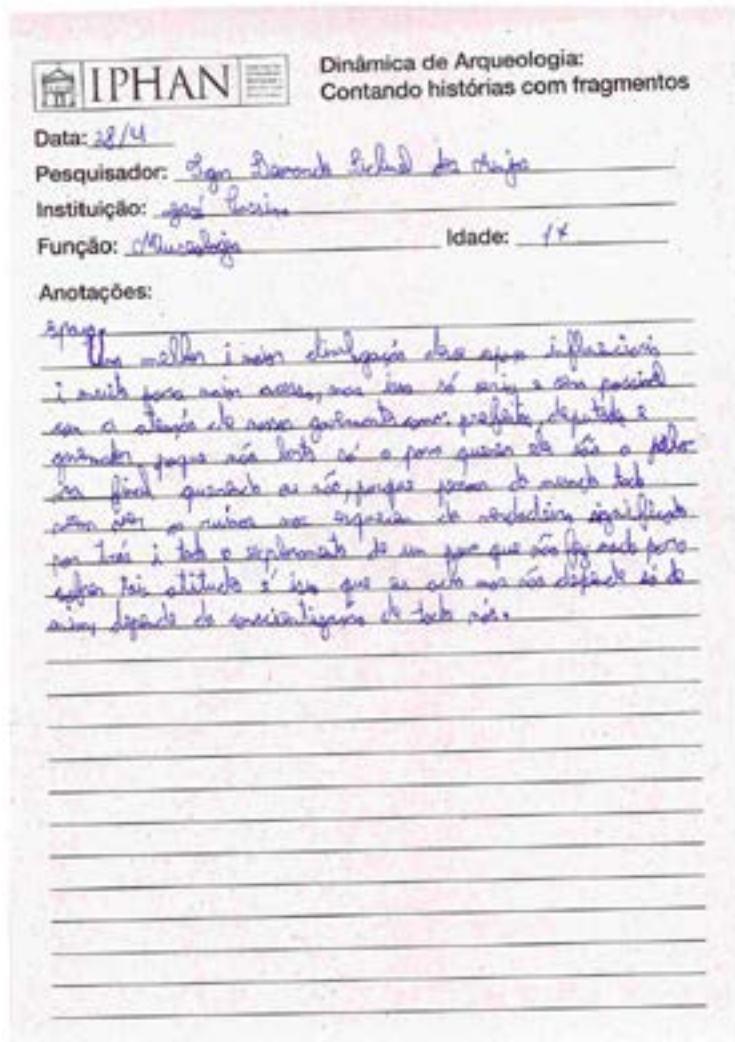 IPHAN
Dinâmica de Arqueologia:
Contando histórias com fragmentos
Data: 28/4
Pesquisador:
Instituição: José
Função: Museologia Idade: 17
Anotações:
Uma melhor i maior divulgação desse espaço influenciaria
i muito para maior acesso, mas isso só seria e sera possivel
com a atenção de nosso governante como: prefeito, deputado e
governador, porque não basta só o povo querer ele são o
final querendo ou não, porque pessoas do mundo todo
vêm ver as ruinas mas esquecem do verdadeiro significado
por trás i todo o de um povo que não fez nada para
sofrer tais atitude é isso que eu acho mas não depende só de
mim, depende da conscientização de todo nós.